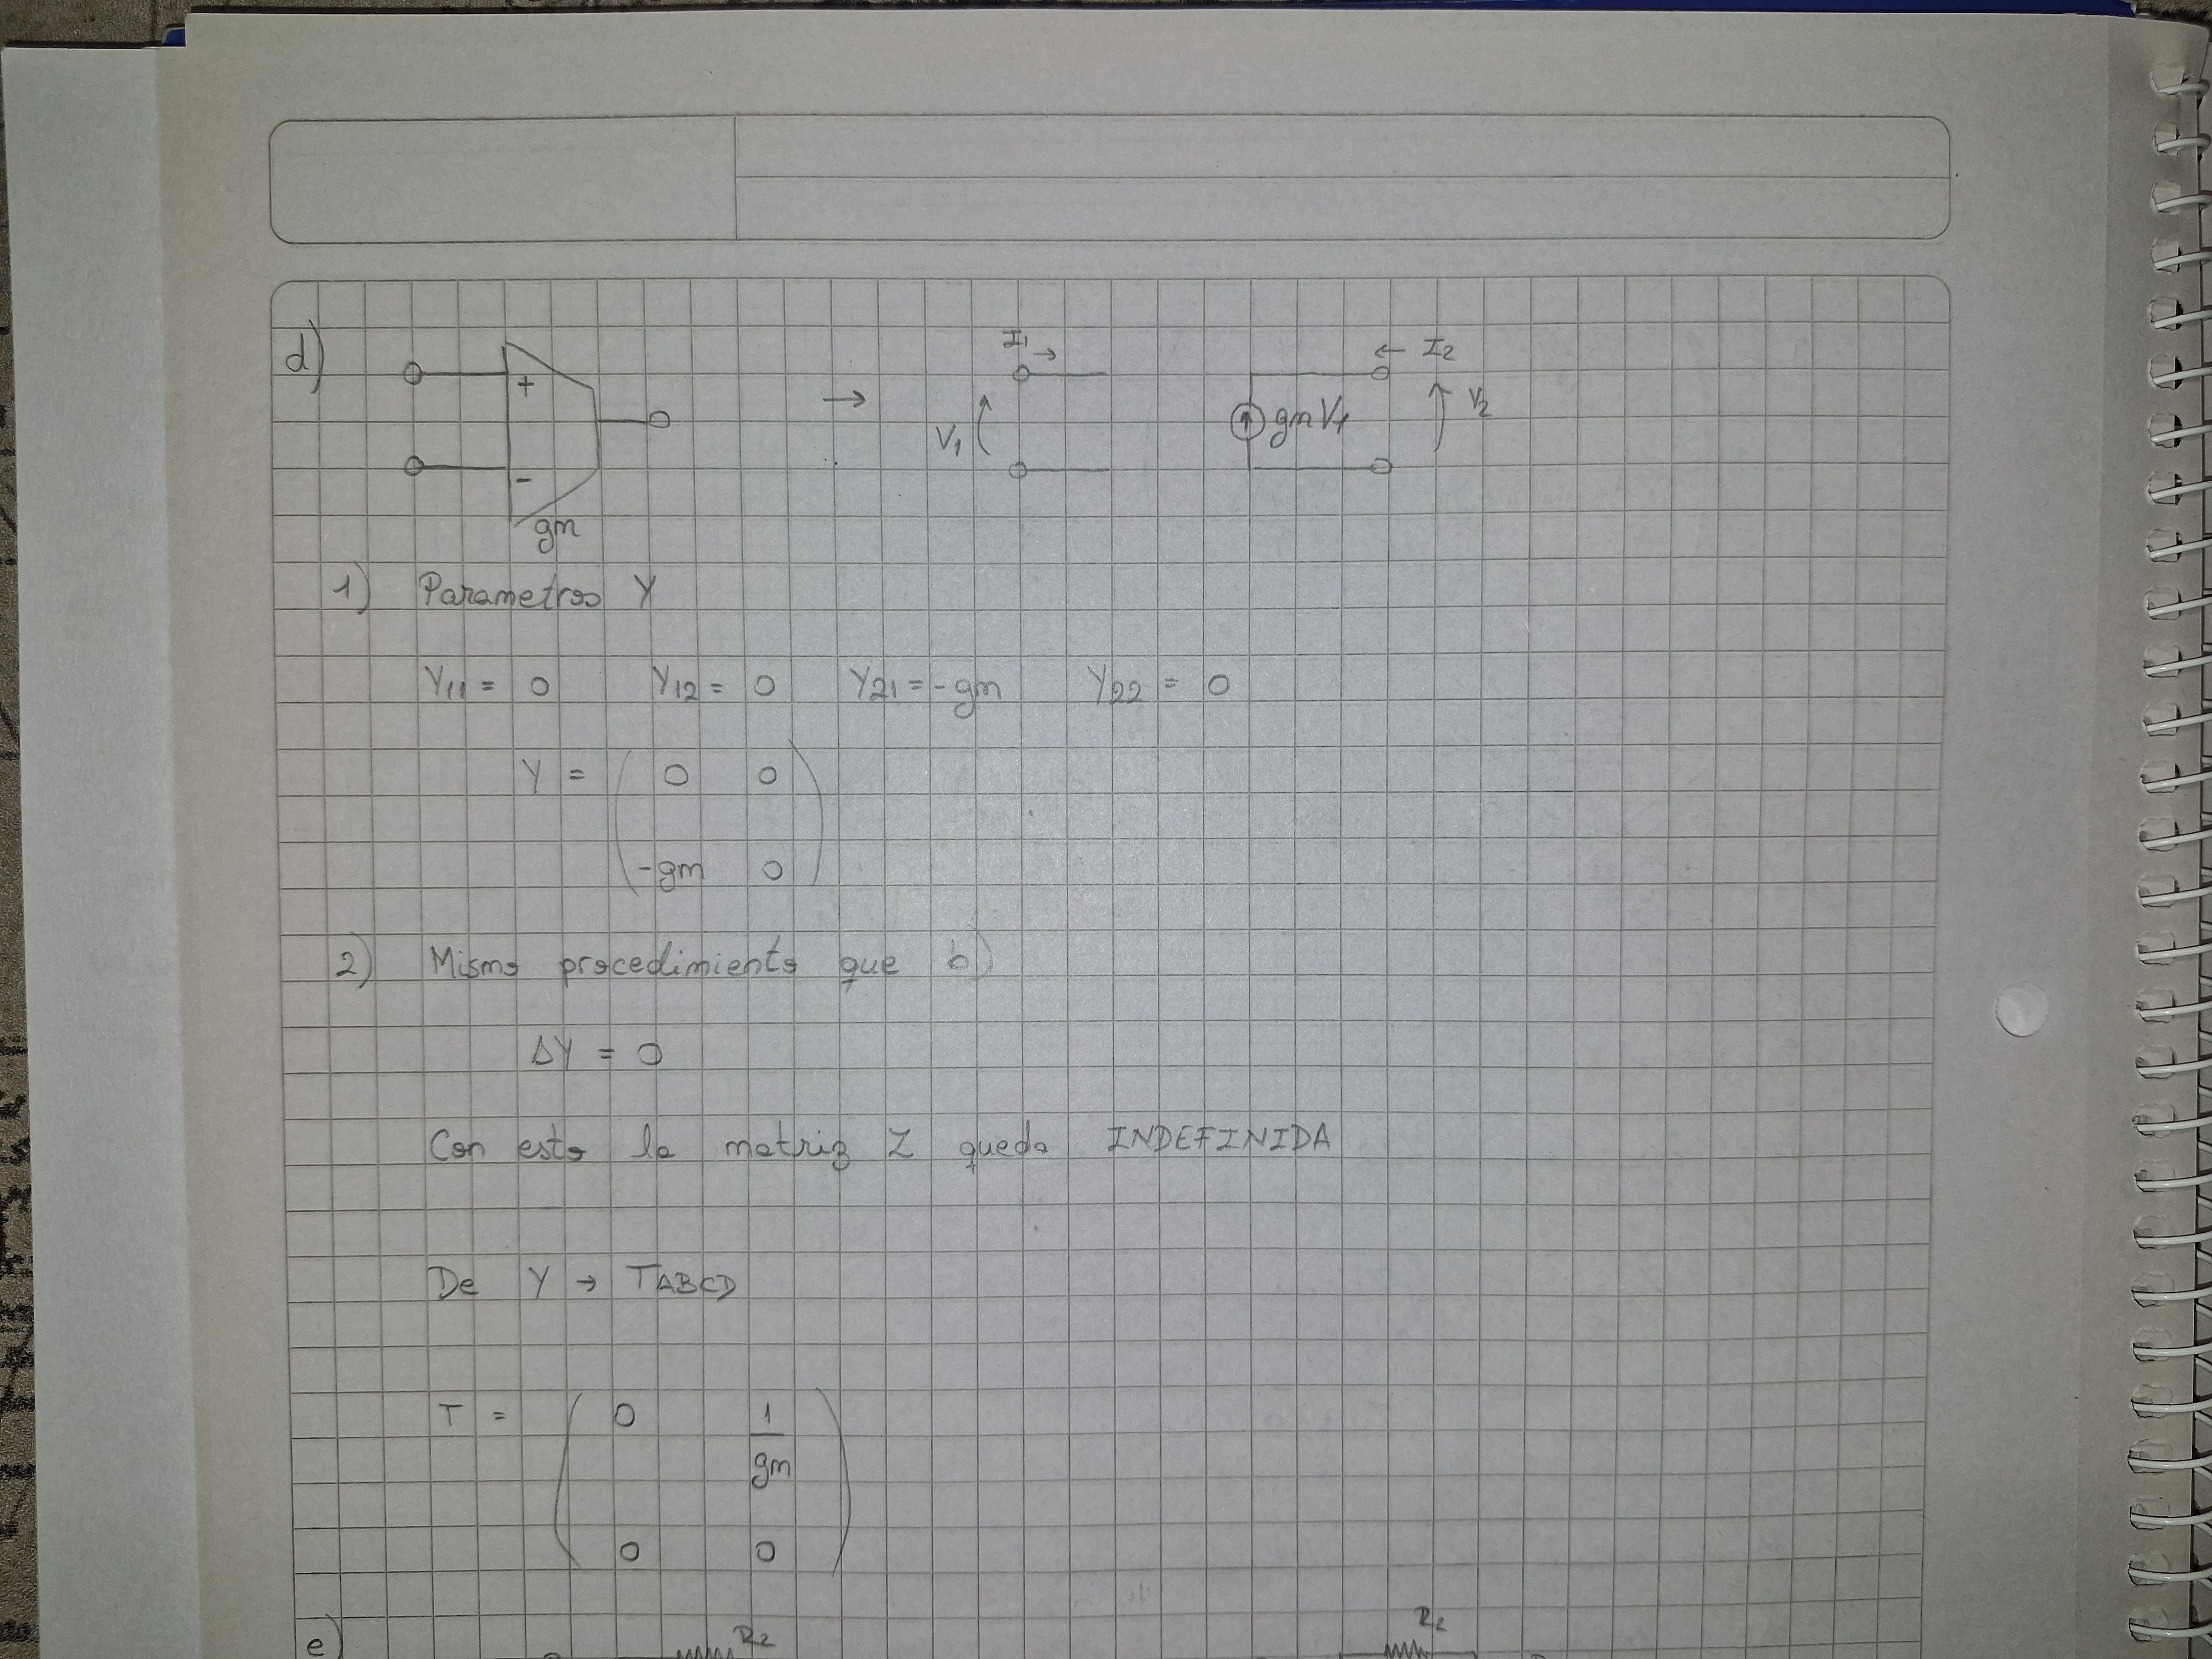 d)
+
-
gm
→
I1 →
V1
gm V1
← I2
V2
1) Parametros Y
Y11 = 0 Y12 = 0 Y21 = -gm Y22 = 0
Y = ( 0 0
-gm 0 )
2) Mismo procedimiento que b)
ΔY = 0
Con esto la matriz Z queda INDEFINIDA
De Y → TABCD
T = ( 0 1/gm
0 0 )
e) R2 R2